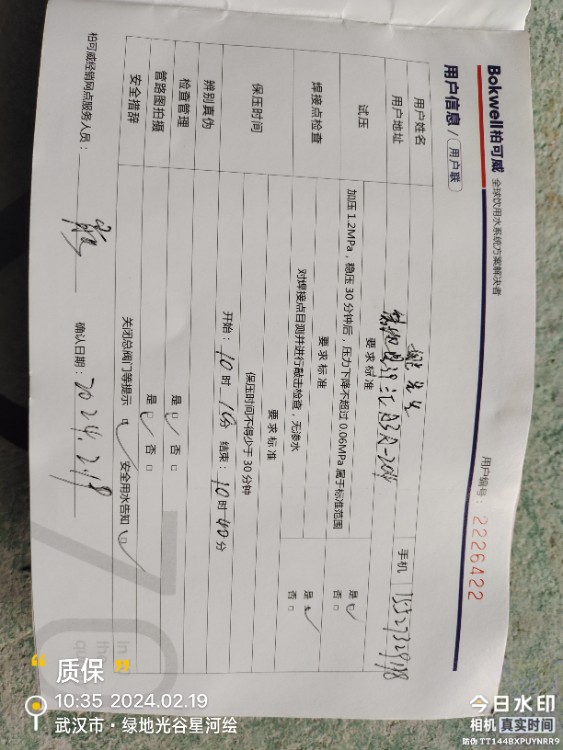 Bokwell柏可威 全球饮用水系统方案解决者
用户信息 / 用户联
用户编号： 2226422
用户姓名
手机
用户地址
要求标准
试压
加压1.2MPa，稳压30分钟后，压力下降不超过0.06MPa属于标准范围
是 否
要求标准
焊接点检查
对焊接点目测并进行敲击检查，无渗水
是 否
要求标准
保压时间
保压时间不得少于30分钟
开始： 10时 10分 结束： 10时40分
辨别真伪
检查管理
是 否
管路图拍摄
是 否
安全措辞
关闭总阀门等提示 安全用水告知
柏可威经销网点服务人员：
确认日期： 2024.2.19
“质保”
10:35 2024.02.19
武汉市·绿地光谷星河绘
今日水印
相机 真实时间
防伪 TT144BXPUYNRR9